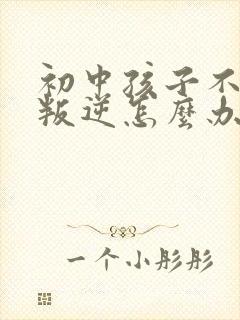 初中孩子不
叛逆怎麼办
一个小彤彤